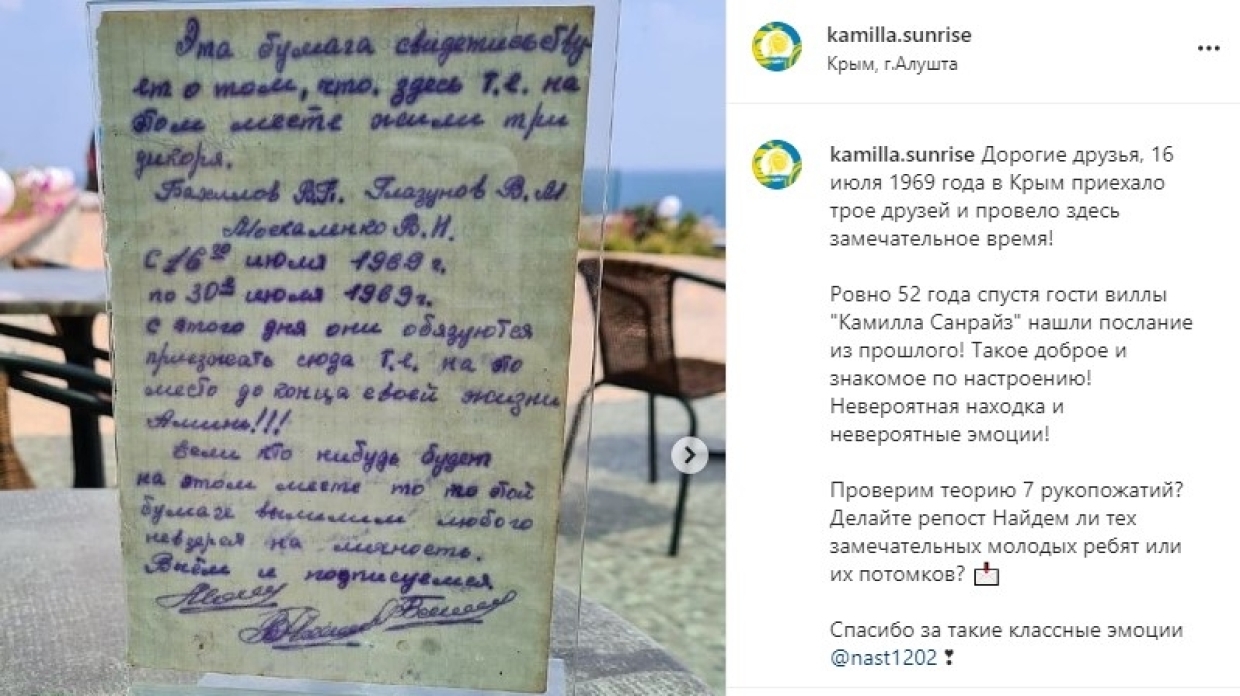 Эта бумага свидетельству
ет о том, что. здесь т.е. на
этом месте жили три
дикоря.
Бахилов В.П. Глазунов В.М.
Москаленко В.Н.
С 16го июля 1969 г.
по 30е июля 1969 г.
с этого дня они обязуются
приезжать сюда т.е. на это
место до конца своей жизни
Аминь!!!
Если кто нибудь будет
на этом месте то по этой
бумаге вымилим любого
невзеряя на личность.
и подписуемся
kamilla.sunrise
Крым, г.Алушта
kamilla.sunrise Дорогие друзья, 16
июля 1969 года в Крым приехало
трое друзей и провело здесь
замечательное время!
Ровно 52 года спустя гости виллы
"Камилла Санрайз" нашли послание
из прошлого! Такое доброе и
знакомое по настроению!
Невероятная находка и
невероятные эмоции!
Проверим теорию 7 рукопожатий?
Делайте репост Найдем ли тех
замечательных молодых ребят или
их потомков?
Спасибо за такие классные эмоции
@nast1202